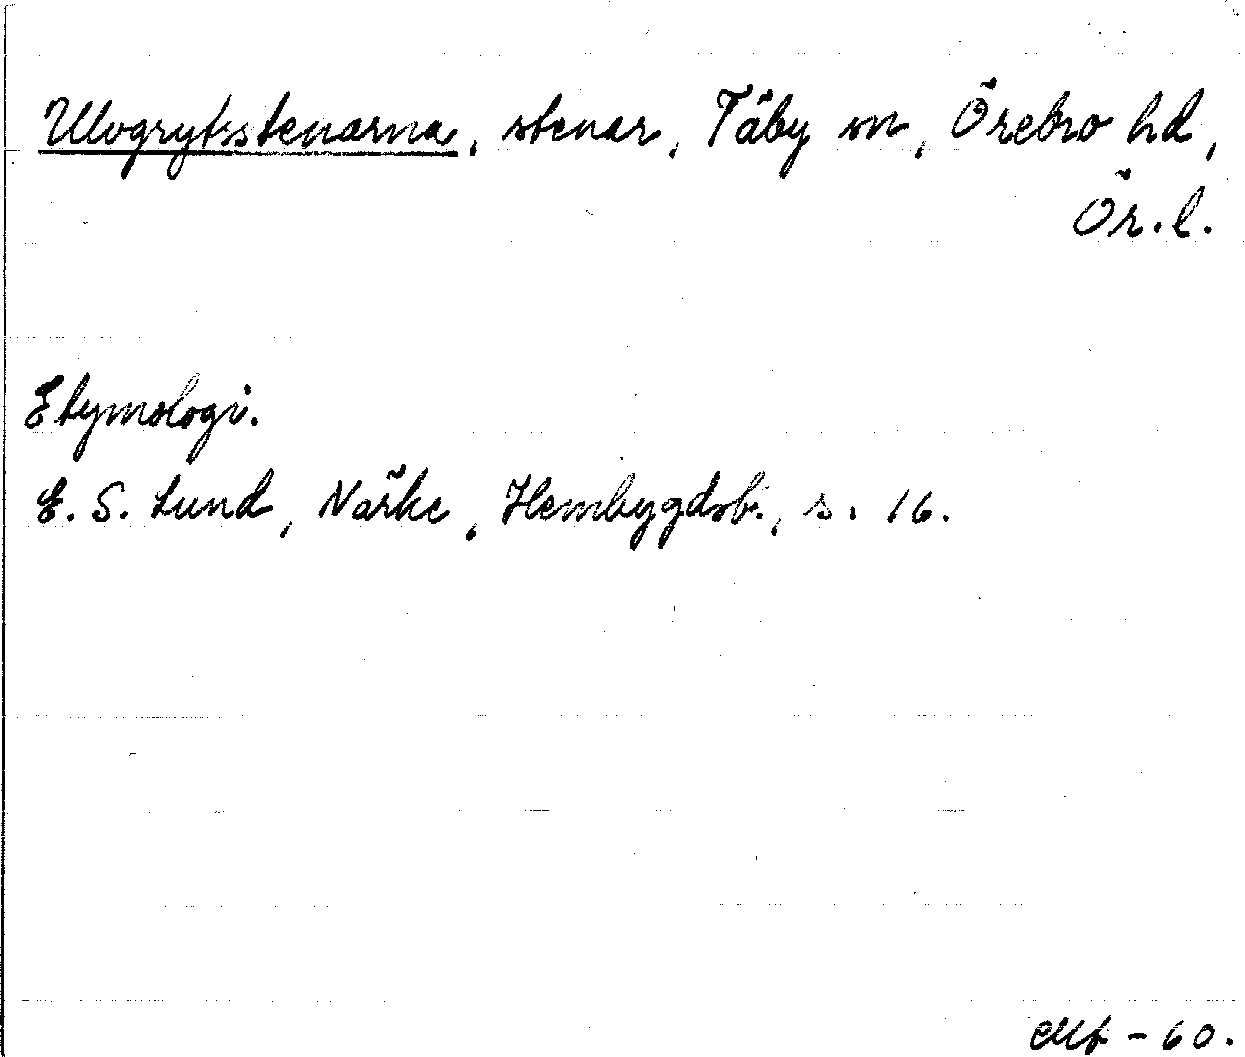 Ulvgrytsstenarna, stenar, Täby sn, Örebro hd,
Ör. l.
Etymologi.
E. S. Lund, Närke, Hembygdsb., s. 16.
- 60.